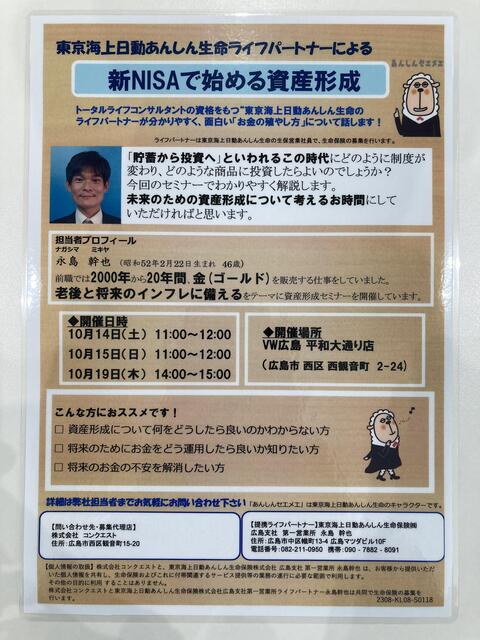 東京海上日動あんしん生命ライフパートナーによる
あんしんセエメエ
新NISAで始める資産形成
トータルライフコンサルタントの資格をもつ"東京海上日動あんしん生命の
ライフパートナーが分かりやすく、面白い「お金の殖やし方」について話します!
ライフパートナーは東京海上日動あんしん生命の生保営業社員で、生命保険の募集を行います。
「貯蓄から投資へ」といわれるこの時代にどのように制度が
変わり、どのような商品に投資したらよいのでしょうか?
今回のセミナーでわかりやすく解説します。
未来のための資産形成について考えるお時間にして
いただければと思います。
担当者プロフィール
ナガシマ ミキヤ
永島 幹也 (昭和52年2月22日生まれ 46歳)
前職では2000年から20年間、金(ゴールド)を販売する仕事をしていました。
老後と将来のインフレに備えるをテーマに資産形成セミナーを開催しています。
◆開催日時
10月14日(土) 11:00～12:00
10月15日(日) 11:00～12:00
10月19日(木) 14:00～15:00
◆開催場所
VW広島 平和大通り店
(広島市 西区 西観音町 2-24)
こんな方におススメです!
□ 資産形成について何をどうしたら良いのかわからない方
□ 将来のためにお金をどう運用したら良いか知りたい方
□ 将来のお金の不安を解消したい方
詳細は弊社担当者までお気軽にお問い合わせ下さい 「あんしんセエメエ」は東京海上日動あんしん生命のキャラクターです。
【問い合わせ先・募集代理店】
株式会社 コンクエスト
住所:広島市西区観音町15-20
【提携ライフパートナー】東京海上日動あんしん生命保険㈱
広島支社 第一営業所 永島 幹也
住所:広島市中区幟町13-4 広島マツダビル10F
電話番号:082-211-0950 携帯:090-7882-8091
【個人情報の取扱】株式会社コンクエストと、東京海上日動あんしん生命保険株式会社広島支社 第一営業所 永島幹也は、お客様から提供いただ
いた個人情報を共有し、生命保険およびこれに付帯関連するサービス提供等の業務の遂行に必要な範囲で利用します。
その他の目的に利用することはありません。
株式会社コンクエストと東京海上日動あんしん生命保険株式会社広島支社第一営業所ライフパートナー永島幹也は共同して生命保険の募集を行います。
2308-KL08-S0118